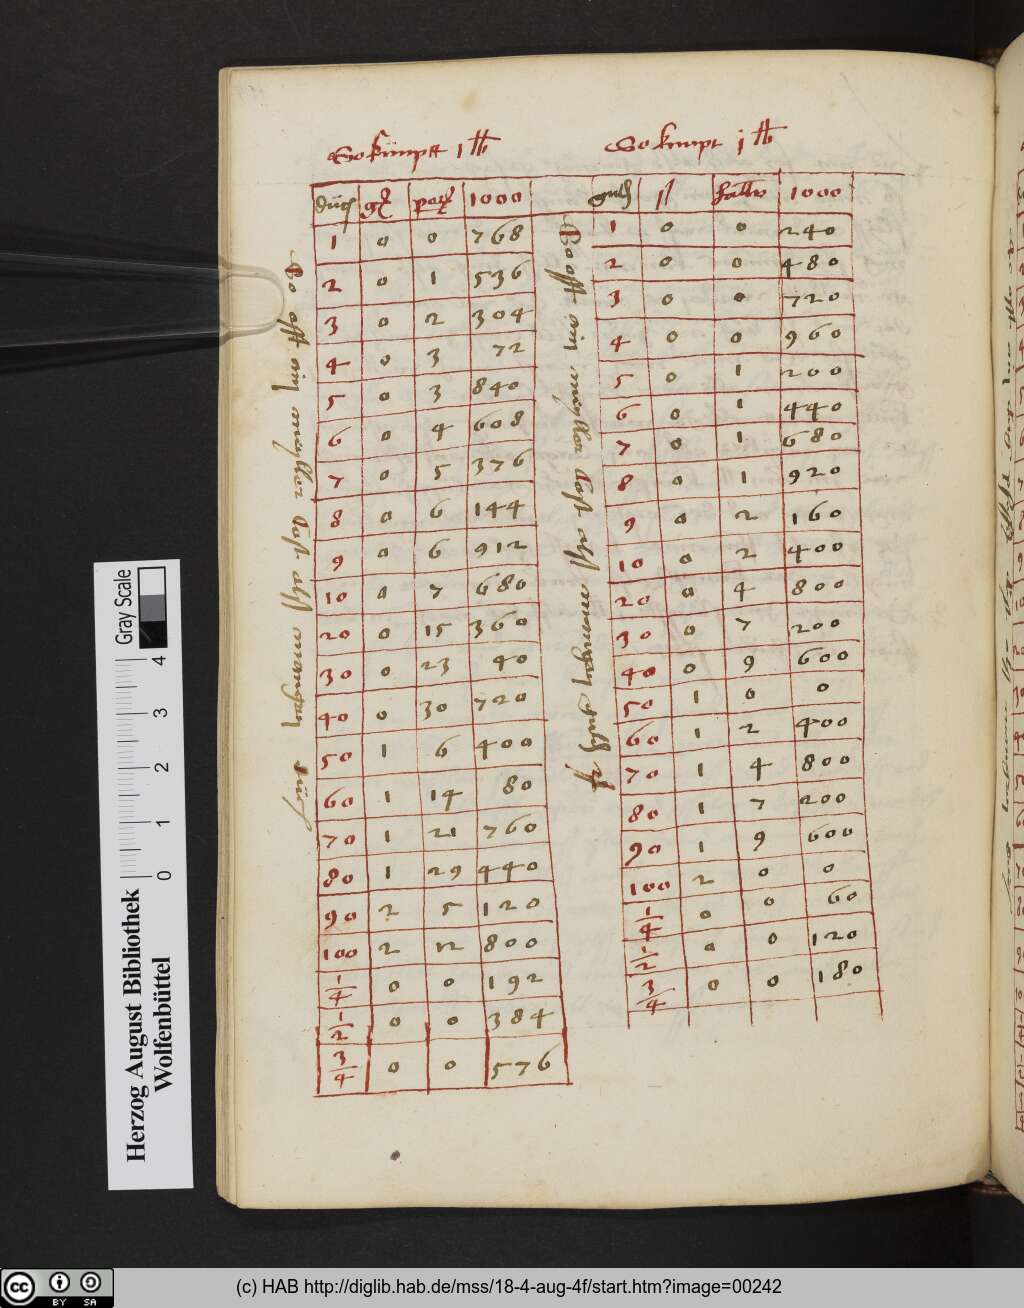 So kumpt 1 lb
duc g 1000
1 0 0 768
2 0 1 536
3 0 2 304
4 0 3 72
5 0 3 840
6 0 4 608
7 0 5 376
8 0 6 144
9 0 6 912
10 0 7 680
20 0 15 360
30 0 23 40
40 0 30 720
50 1 6 400
60 1 14 80
70 1 21 760
80 1 29 440
90 2 5 120
100 2 12 800
1/4 0 0 192
1/2 0 0 384
3/4 0 0 576
So kumpt j lb
1000
1 0 0 240
2 0 0 480
3 0 0 720
4 0 0 960
5 0 1 200
6 0 1 440
7 0 1 680
8 0 1 920
9 0 2 160
10 0 2 400
20 0 4 800
30 0 7 200
40 0 9 600
50 1 0 0
60 1 2 400
70 1 4 800
80 1 7 200
90 1 9 600
100 2 0 0
1/4 0 0 60
1/2 0 0 120
3/4 0 0 180
So offt ein
So offt ein
Herzog August Bibliothek
Wolfenbüttel
Gray Scale
0 1 2 3 4
cc BY SA
(c) HAB http://diglib.hab.de/mss/18-4-aug-4f/start.htm?image=00242